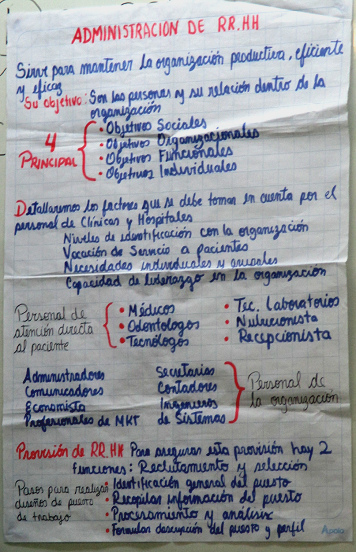 ADMINISTRACION DE RR.HH
Sirve para mantener la organización productiva, eficiente
y eficaz
Su objetivo: Son las personas y su relación dentro de la
organización
4
PRINCIPAL
• Objetivos Sociales
• Objetivos Organizacionales
• Objetivos Funcionales
• Objetivos Individuales
Detallaremos los factores que se debe tomar en cuenta por el
personal de Clínicas y Hospitales
Niveles de identificación con la organización
Vocación de Servicio a pacientes
Necesidades individuales y grupales
Capacidad de liderazgo en la organización
Personal de
atención directa
al paciente
• Médicos
• Odontologos
• Tecnologos
• Tec. Laboratorios
• Nutricionista
• Recepcionista
Administradores
Comunicadores
Economista
Profesionales de MKT
Secretarias
Contadores
Ingenieros
de Sistemas
Personal de
la organización
Provisión de RR.HH Para asegurar esta provisión hay 2
funciones: Reclutamiento y selección
Pasos para realizar
diseños de puesto
de trabajo
• Identificación general del puesto
• Recopilar información del puesto
• Procesamiento y análisis
• Formular descripción del puesto y perfil